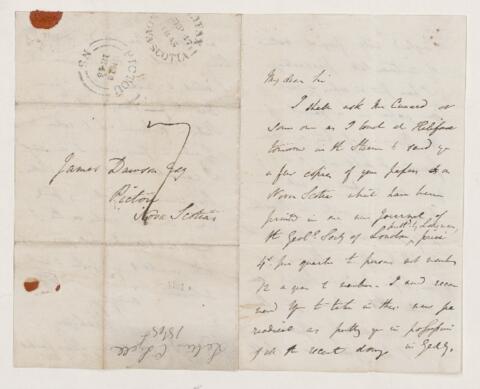 HALIFAX
NOVA SCOTIA
PICTOU
N.S.
1845
7
James Dawson Esq
Pictou
Nova Scotia
C Lyell
My dear Sir
I shall ask Mr Cunard or
some one as I land at Halifax
tomorrow in the Steamer to send you
a few copies of your papers on
Nova Scotia which have been
printed in our new Journal of
the Geol. Socy of London, publd by Longman, price
4s. per quarter to persons not members
12 a year to members. I
you to take in this new pe
riodical as putting you in possession
of all the recent doings in Geology.